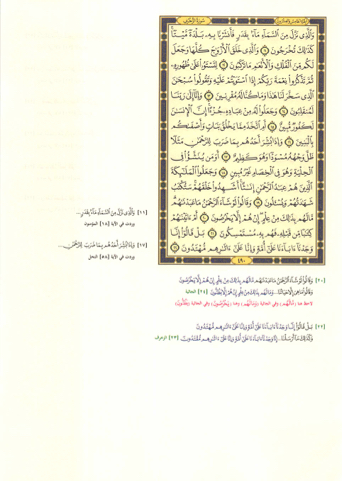 وَالَّذِى نَزَّلَ مِنَ السَّمَآءِ مَآءًۢ بِقَدَرٍ فَأَنشَرْنَا بِهِۦ بَلْدَةً مَّيْتًا
كَذَٰلِكَ تُخْرَجُونَ ۝ وَالَّذِى خَلَقَ الْأَزْوَٰجَ كُلَّهَا وَجَعَلَ
لَكُم مِّنَ الْفُلْكِ وَالْأَنْعَٰمِ مَا تَرْكَبُونَ ۝ لِتَسْتَوُۥا۟ عَلَىٰ ظُهُورِهِۦ
ثُمَّ تَذْكُرُوا۟ نِعْمَةَ رَبِّكُمْ إِذَا اسْتَوَيْتُمْ عَلَيْهِ وَتَقُولُوا۟ سُبْحَٰنَ
الَّذِى سَخَّرَ لَنَا هَٰذَا وَمَا كُنَّا لَهُۥ مُقْرِنِينَ ۝ وَإِنَّآ إِلَىٰ رَبِّنَا
لَمُنقَلِبُونَ ۝ وَجَعَلُوا۟ لَهُۥ مِنْ عِبَادِهِۦ جُزْءًا ۚ إِنَّ الْإِنسَٰنَ
لَكَفُورٌ مُّبِينٌ ۝ أَمِ اتَّخَذَ مِمَّا يَخْلُقُ بَنَاتٍ وَأَصْفَىٰكُم
بِالْبَنِينَ ۝ وَإِذَا بُشِّرَ أَحَدُهُم بِمَا ضَرَبَ لِلرَّحْمَٰنِ مَثَلًا
ظَلَّ وَجْهُهُۥ مُسْوَدًّا وَهُوَ كَظِيمٌ ۝ أَوَمَن يُنَشَّؤُا۟ فِى
الْحِلْيَةِ وَهُوَ فِى الْخِصَامِ غَيْرُ مُبِينٍ ۝ وَجَعَلُوا۟ الْمَلَٰٓئِكَةَ
الَّذِينَ هُمْ عِبَٰدُ الرَّحْمَٰنِ إِنَٰثًا ۚ أَشَهِدُوا۟ خَلْقَهُمْ ۚ سَتُكْتَبُ
شَهَٰدَتُهُمْ وَيُسْـَٔلُونَ ۝ وَقَالُوا۟ لَوْ شَآءَ الرَّحْمَٰنُ مَا عَبَدْنَٰهُم ۗ
مَّا لَهُم بِذَٰلِكَ مِنْ عِلْمٍ ۖ إِنْ هُمْ إِلَّا يَخْرُصُونَ ۝ أَمْ ءَاتَيْنَٰهُمْ
كِتَٰبًا مِّن قَبْلِهِۦ فَهُم بِهِۦ مُسْتَمْسِكُونَ ۝ بَلْ قَالُوٓا۟ إِنَّا
وَجَدْنَآ ءَابَآءَنَا عَلَىٰٓ أُمَّةٍ وَإِنَّا عَلَىٰٓ ءَاثَٰرِهِم مُّهْتَدُونَ ۝
٤٩٠
[١١] وَالَّذِى نَزَّلَ مِنَ السَّمَآءِ مَآءًۢ بِقَدَرٍ...
وردت في الآية [١٨] المؤمنون
[١٧] وَإِذَا بُشِّرَ أَحَدُهُم بِمَا ضَرَبَ لِلرَّحْمَٰنِ...
وردت في الآية [٥٨] النحل
[٢٠] وَقَالُوا۟ لَوْ شَآءَ الرَّحْمَٰنُ مَا عَبَدْنَٰهُم مَّا لَهُم بِذَٰلِكَ مِنْ عِلْمٍ إِنْ هُمْ إِلَّا يَخْرُصُونَ
[٢٢] بَلْ قَالُوٓا۟ إِنَّا وَجَدْنَآ ءَابَآءَنَا عَلَىٰٓ أُمَّةٍ وَإِنَّا عَلَىٰٓ ءَاثَٰرِهِم مُّهْتَدُونَ